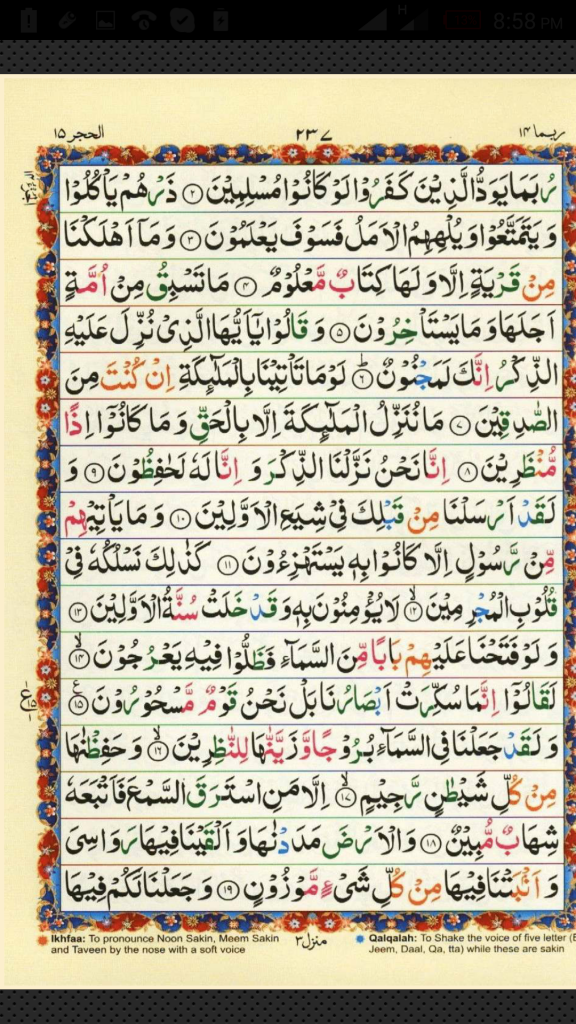 H 8:58 PM
ربما ۱۴ ۲۳۷ الحجر ۱۵
رُبَمَا يَوَدُّ الَّذِيْنَ كَفَرُوْا لَوْ كَانُوْا مُسْلِمِيْنَ ۲ ذَرْهُمْ يَاْكُلُوْا
وَ يَتَمَتَّعُوْا وَ يُلْهِهِمُ الْاَمَلُ فَسَوْفَ يَعْلَمُوْنَ ۳ وَ مَاۤ اَهْلَكْنَا
مِنْ قَرْيَةٍ اِلَّا وَ لَهَا كِتَابٌ مَّعْلُوْمٌ ۴ مَا تَسْبِقُ مِنْ اُمَّةٍ
اَجَلَهَا وَ مَا يَسْتَاْخِرُوْنَ ۵ وَ قَالُوْا يٰۤاَيُّهَا الَّذِيْ نُزِّلَ عَلَيْهِ
الذِّكْرُ اِنَّكَ لَمَجْنُوْنٌ ۶ لَوْ مَا تَاْتِيْنَا بِالْمَلٰٓىِٕكَةِ اِنْ كُنْتَ مِنَ
الصّٰدِقِيْنَ ۷ مَا نُنَزِّلُ الْمَلٰٓىِٕكَةَ اِلَّا بِالْحَقِّ وَ مَا كَانُوْۤا اِذًا
مُّنْظَرِيْنَ ۸ اِنَّا نَحْنُ نَزَّلْنَا الذِّكْرَ وَ اِنَّا لَهٗ لَحٰفِظُوْنَ ۹ وَ
لَقَدْ اَرْسَلْنَا مِنْ قَبْلِكَ فِيْ شِيَعِ الْاَوَّلِيْنَ ۱۰ وَ مَا يَاْتِيْهِمْ
مِّنْ رَّسُوْلٍ اِلَّا كَانُوْا بِهٖ يَسْتَهْزِءُوْنَ ۱۱ كَذٰلِكَ نَسْلُكُهٗ فِيْ
قُلُوْبِ الْمُجْرِمِيْنَ ۱۲ لَا يُؤْمِنُوْنَ بِهٖ وَ قَدْ خَلَتْ سُنَّةُ الْاَوَّلِيْنَ ۱۳
وَ لَوْ فَتَحْنَا عَلَيْهِمْ بَابًا مِّنَ السَّمَآءِ فَظَلُّوْا فِيْهِ يَعْرُجُوْنَ ۱۴
لَقَالُوْۤا اِنَّمَا سُكِّرَتْ اَبْصَارُنَا بَلْ نَحْنُ قَوْمٌ مَّسْحُوْرُوْنَ ۱۵
وَ لَقَدْ جَعَلْنَا فِي السَّمَآءِ بُرُوْجًا وَّ زَيَّنّٰهَا لِلنّٰظِرِيْنَ ۱۶ وَ حَفِظْنٰهَا
مِنْ كُلِّ شَيْطٰنٍ رَّجِيْمٍ ۱۷ اِلَّا مَنِ اسْتَرَقَ السَّمْعَ فَاَتْبَعَهٗ
شِهَابٌ مُّبِيْنٌ ۱۸ وَ الْاَرْضَ مَدَدْنٰهَا وَ اَلْقَيْنَا فِيْهَا رَوَاسِيَ
وَ اَنْۢبَتْنَا فِيْهَا مِنْ كُلِّ شَيْءٍ مَّوْزُوْنٍ ۱۹ وَ جَعَلْنَا لَكُمْ فِيْهَا
Ikhfaa: To pronounce Noon Sakin, Meem Sakin
and Taveen by the nose with a soft voice
منزل ۳
Qalqalah: To Shake the voice of five letter (B
Jeem, Daal, Qa, tta) while these are sakin